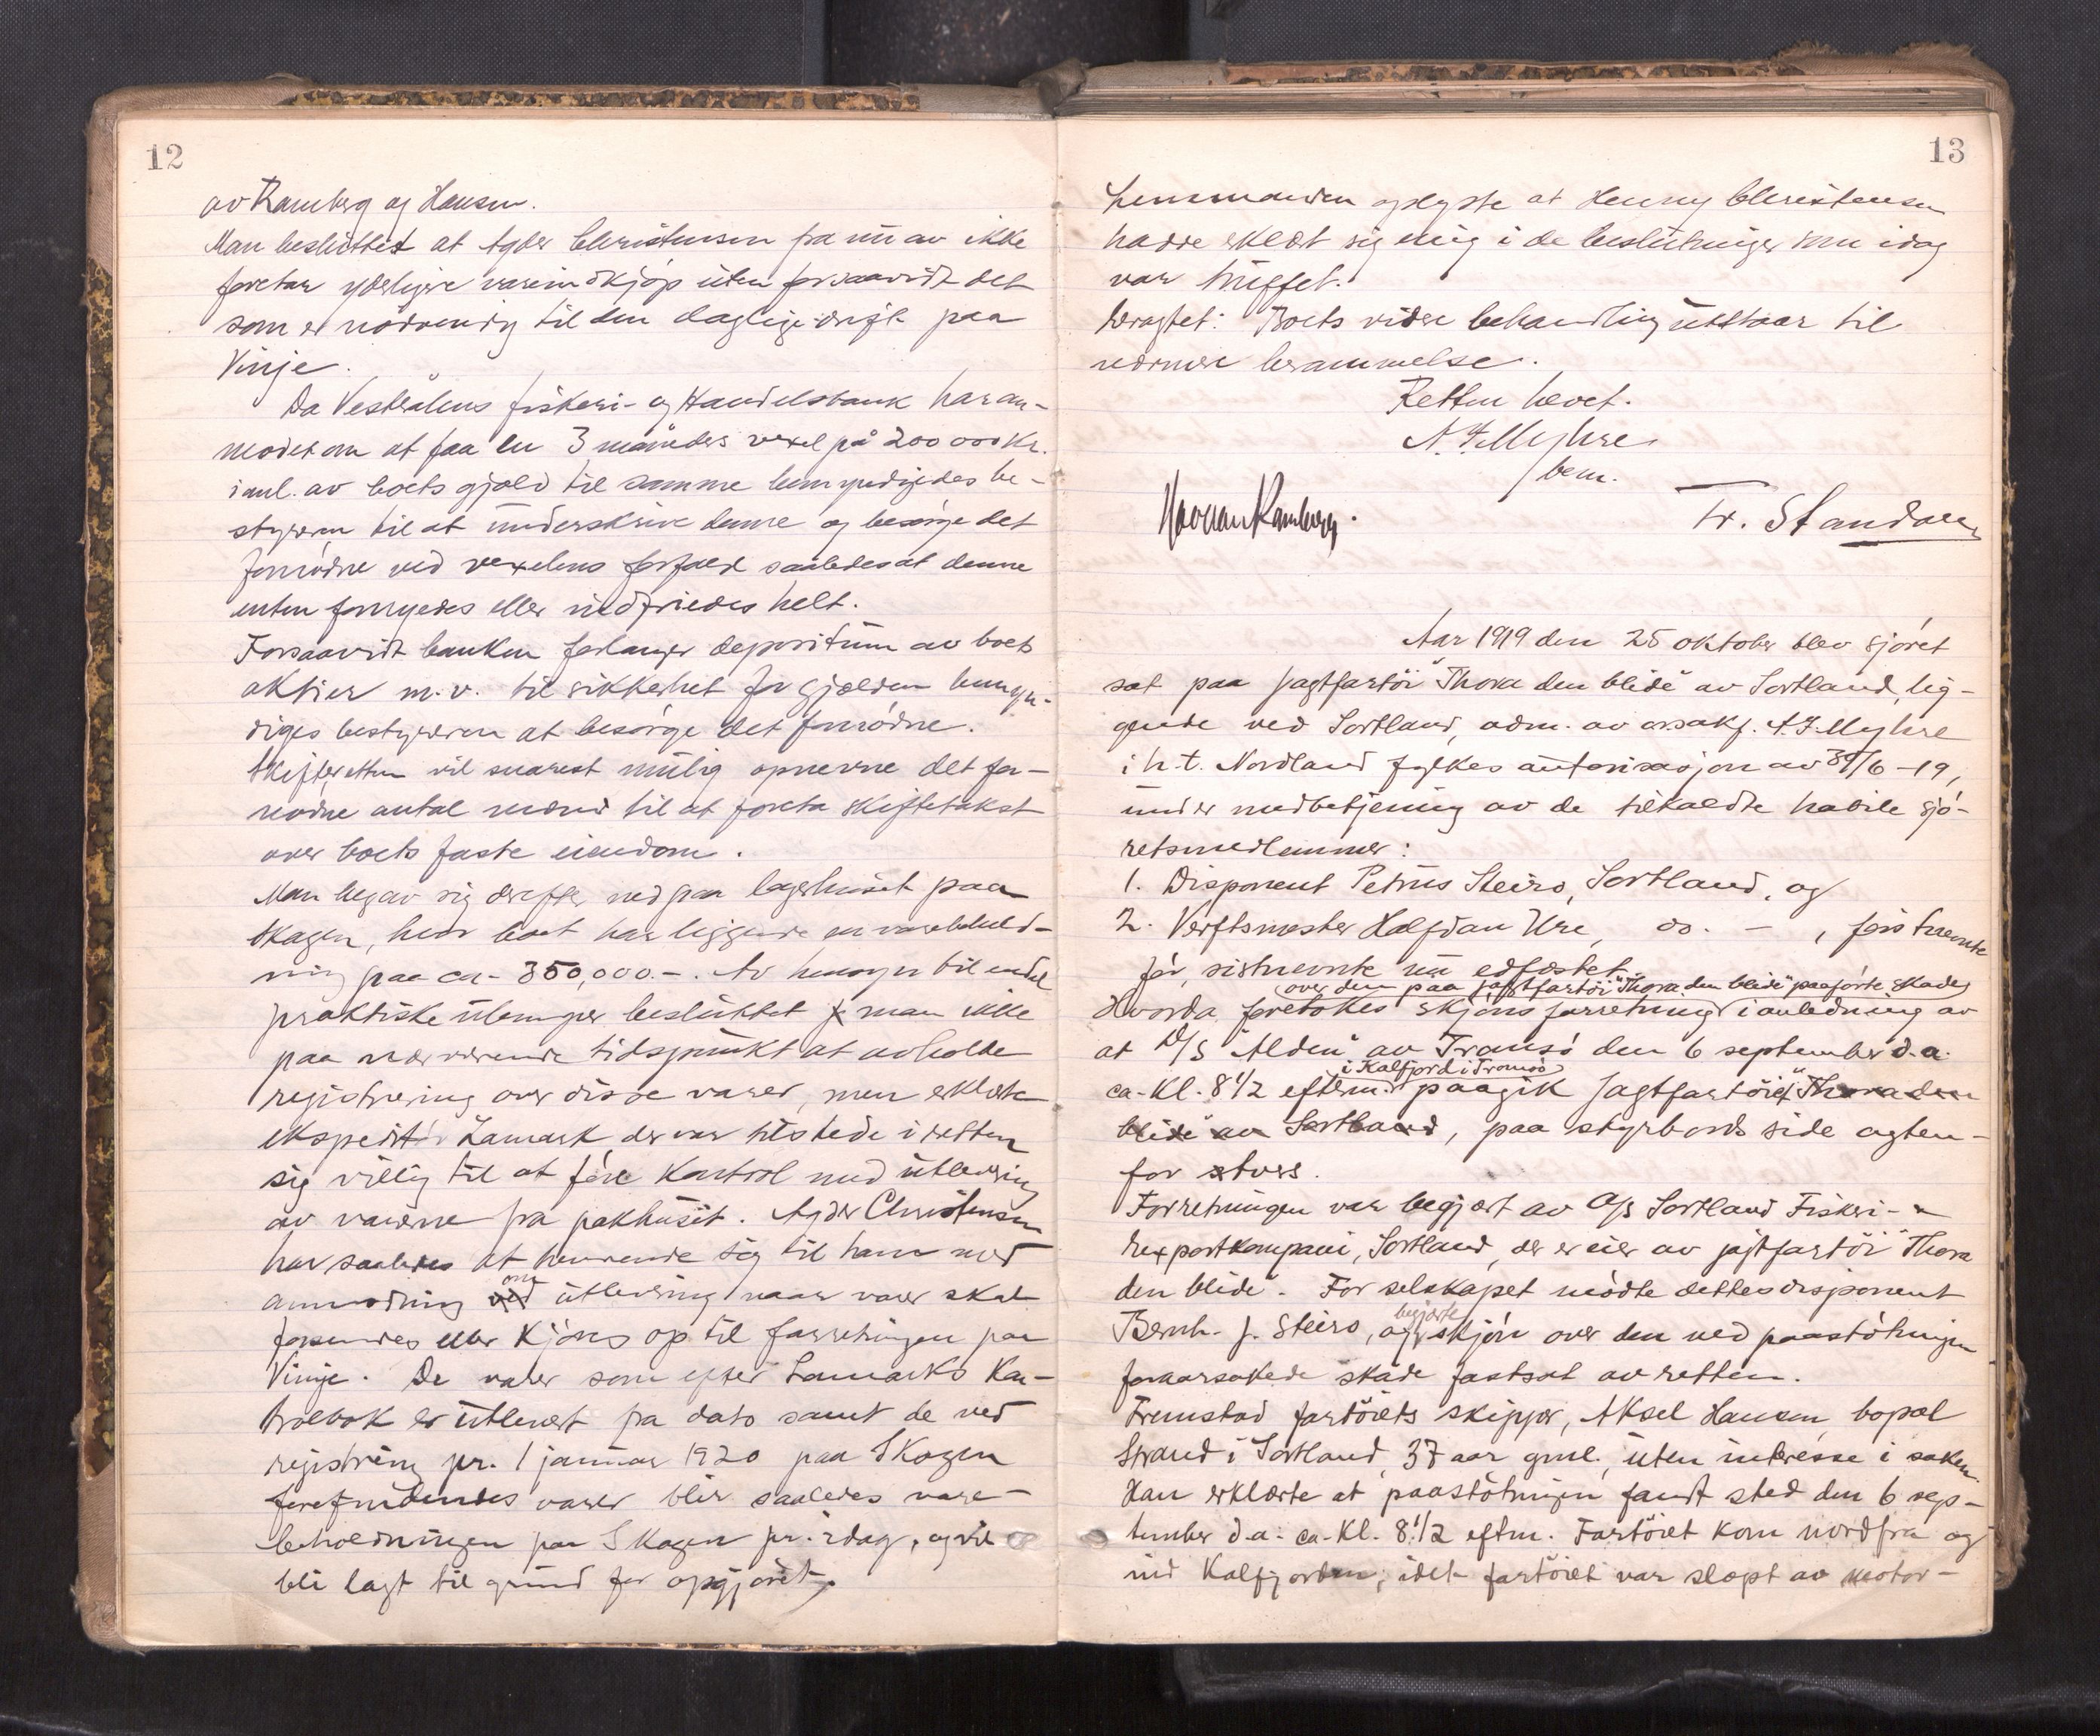 12
av Ramberg og Hansen.
Man besluttet at Agder Christensen fra nu av ikke
foretar yderligere vareindkjøp uten forsaavidt det
som er nødvendig til den daglige drift paa
Vinje.
Da Vesterålens fiskeri- og Handelsbank har an-
modet om at faa en 3 måneders vexel på 200 000 kr.
i anl. av boets gjæld til samme bemyndigedes be-
styreren til at underskrive denne og besørge det
fornødne ved vexelens forfald saaledes at denne
enten fornyedes eller indfriedes helt.
Forsaavidt banken forlanger depositum av boets
aktier m.v. til sikkerhet for gjælden bemyn-
diges bestyreren at besørge det fornødne.
Skifteretten vil snarest mulig opnevne det for-
nødne antal mænd til at foreta skiftetakst
over boets faste eiendom.
Man begav sig derefter ned paa lagerhuset paa
Skagen, hvor boet har liggende en varebehold-
ning paa ca- 350,000.-. Av hensyn til endel
praktiske ulemper besluttet man ikke
paa nærværende tidspunkt at avholde
registrering over disse varer, men erklærte
ekspeditør Lamark der var tilstede i retten
sig villig til at føre kontrol med utlevering
av varerne fra pakhuset. Agder Christensen
har saaledes at henvende sig til ham med
anmodning ved om utlevering naar varer skal
forsendes eller kjøres op til forretningen paa
Vinje. De varer som efter Lamarks kon-
trolbok er utlevert fra dato samt de ved
registrering pr. 1 januar 1920 paa Skagen
forefindendes varer blir saaledes vare-
beholdningen paa Skagen pr. idag, og vil
bli lagt til grund for opgjøret.
13
Lensmanden oplyste at Henny Christensen
hadde erklært sig enig i de beslutninger som idag
var truffet.
Dragtet: Boets videre behandling utstaar til
nærmere berammelse.
Retten hævet.
A. F. Myhre
bem.
Haavan Ramberg.
Fr. Standal
Aar 1919 den 25 oktober blev sjøret
sat paa jagtfartöi "Thora den blide" av Sortland, lig-
gende ved Sortland, adm. av o.r.sakf. A. F. Myhre
i h.t. Nordland fylkes autorisasjon av 30/6 -19,
under medbetjening av de tilkaldte habile sjø-
retsmedlemmer:
1. Disponent Petrus Steiro, Sortland, og
2. Verftsmester Halfdan Ure, do. - , førstnevnte
før, sistnevnte nu edfæstet.
over den paa jagtfartöi "Thora den blide" paaførte skade
Hvorda foretokes skjønsforretning i anledning av
at D/S "Alden" av Tromsø den 6 september d.a.
i Kalfjord i Tromsø
ca. kl. 8 1/2 efterm. paagik jagtfartöiet "Thora den
blide" av Sortland, paa styrbords side agten-
for tvers.
Forretningen var begjært av A/S Sortland Fiskeri- &
Exportkompani, Sortland, der er eier av jagtfartöi "Thora
den blide". For selskapet mødte dettes disponent
Bernh. J. Steiro, og begjærte skjøn over den ved paastøtningen
foraarsakede skade fastsat av retten.
Fremstod fartøiets skipper, Aksel Hansen, bopæl
Strand i Sortland, 37 aar gml., uten interesse i saken.
Han erklærte at paastøtningen fandt sted den 6 sep-
tember d.a. ca. kl. 8 1/2 eftm. Fartøiet kom nordfra og
ind Kalfjorden, idet fartøiet var slæpt av motor-